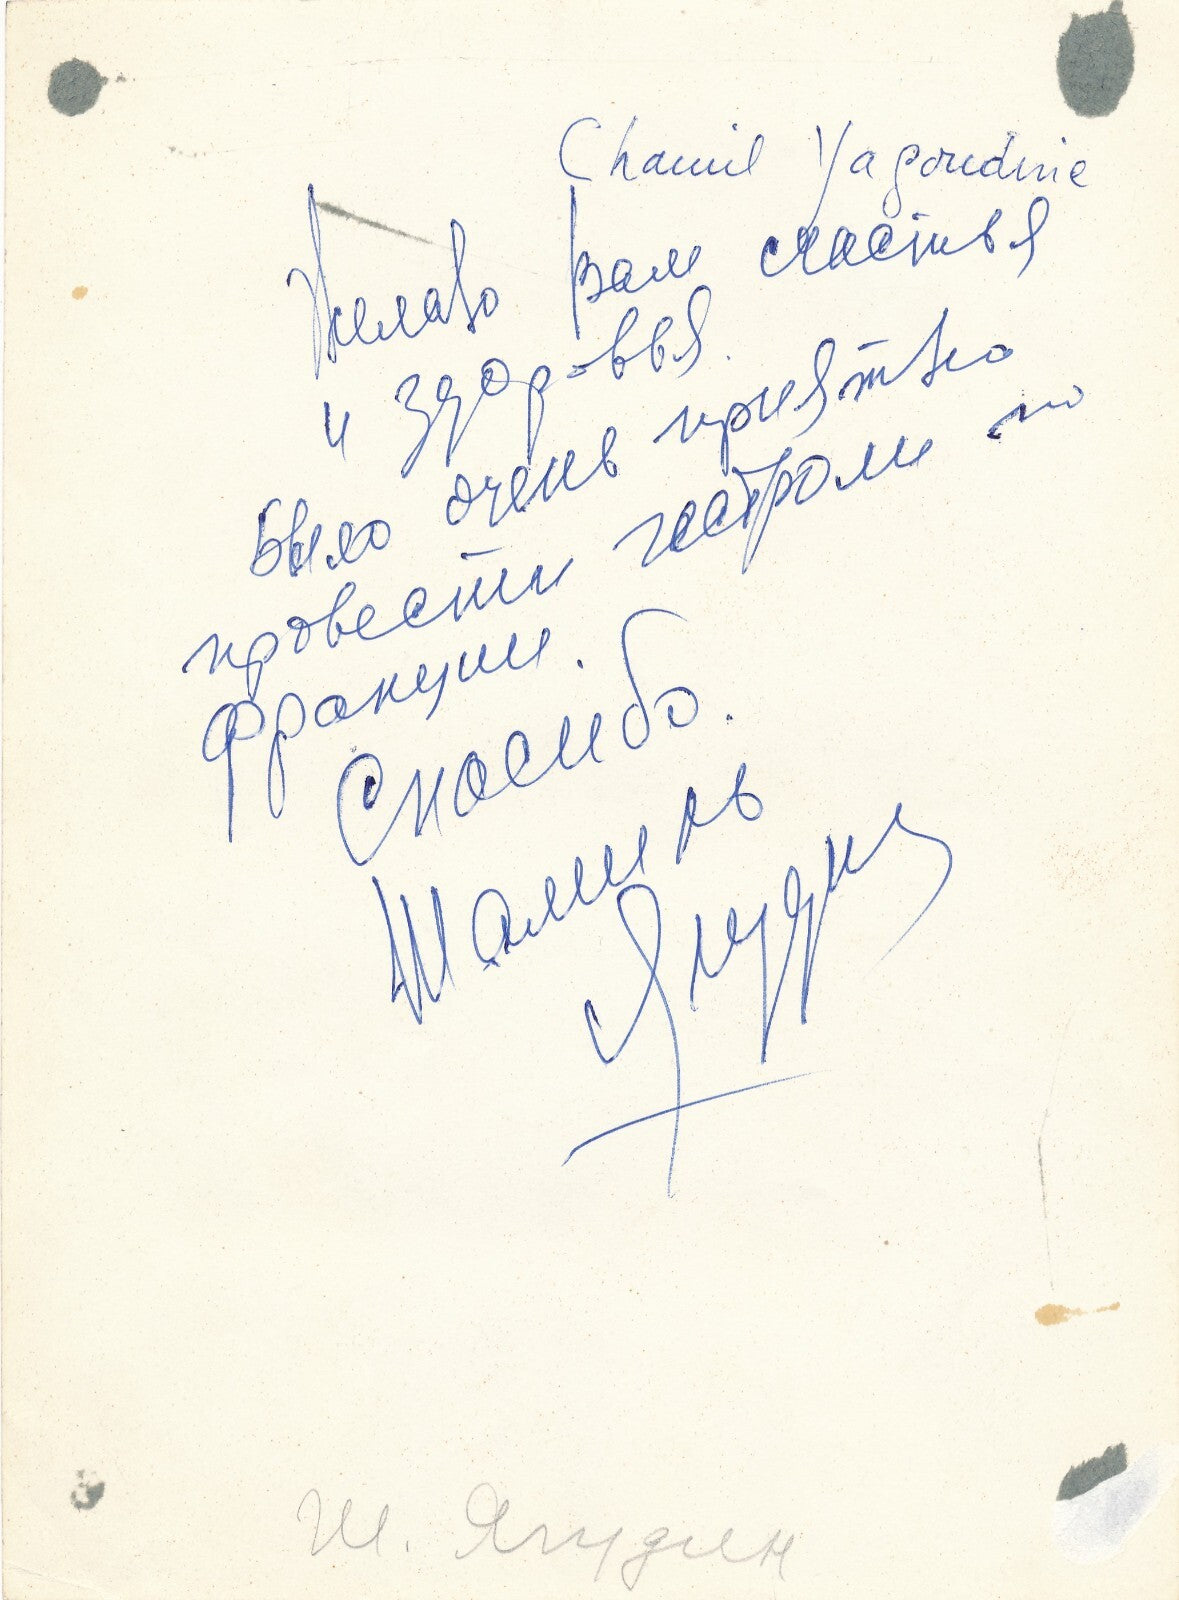 Chamil Yagoudine
Желаю Вам счастья
и здоровья.
Было очень приятно
провести гастроли по
Франции.
Спасибо.
Шамиль
Ягудин
Ш. Ягудин